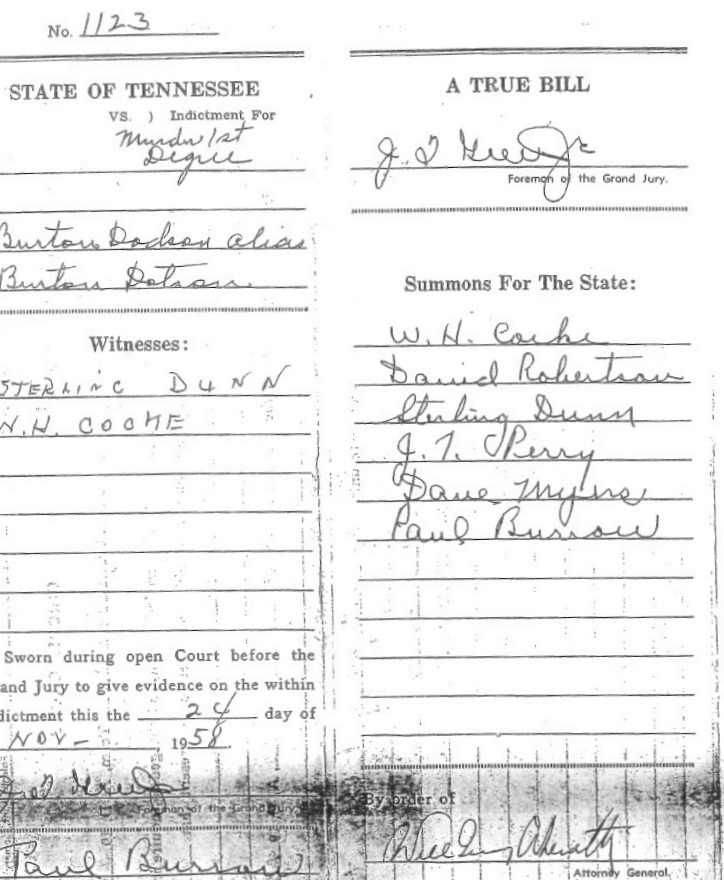 No. 1123
STATE OF TENNESSEE
VS. ) Indictment For
Murder 1st
Degree
Burton Dodson alias
Burton Dotson
Witnesses:
STERLING DUNN
W.H. COCKE
Sworn during open Court before the
and Jury to give evidence on the within
dictment this the 24 day of
NOV- 1958
Foreman of the Grand Jury.
Paul Burrow
A TRUE BILL
J. T.
Foreman of the Grand Jury.
Summons For The State:
W. H. Cocke
David Robertson
Sterling Dunn
J. T. Perry
Dave
Paul Burrow
By order of
Attorney General.